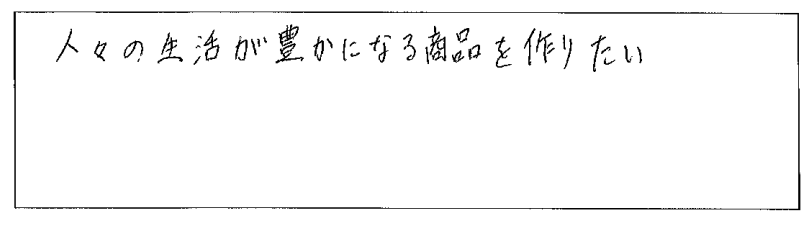 人々の生活が豊かになる商品を作りたい